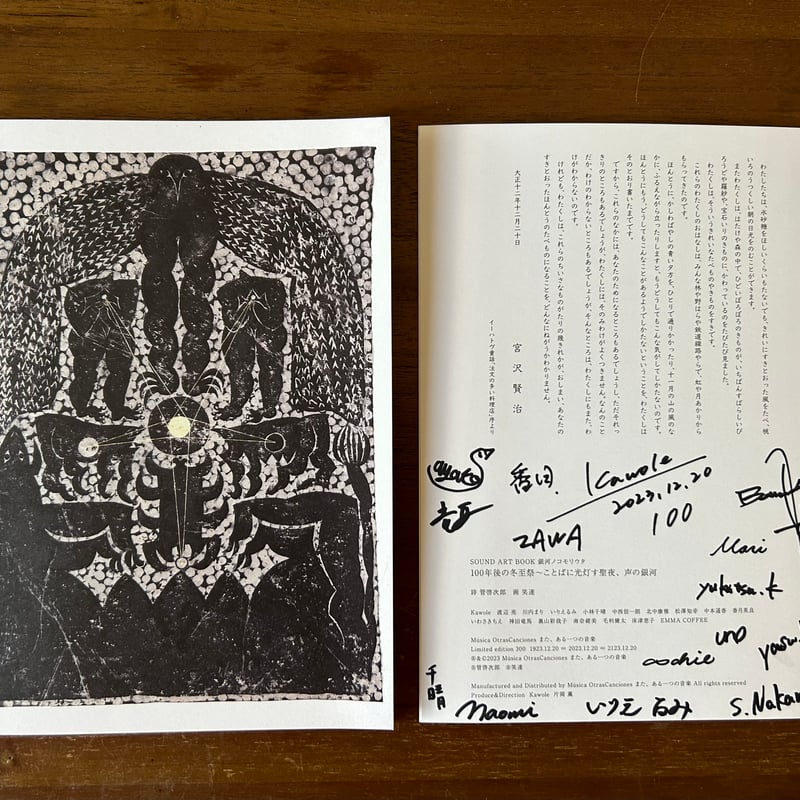 わたしたちは、氷砂糖をほしいくらいもたないでも、きれいにすきとおった風をたべ、桃
いろのうつくしい朝の日光をのむことができます。
またわたくしは、はたけや森の中で、ひどいぼろぼろのきものが、いちばんすばらしいび
ろうどや羅紗や、宝石いりのきものに、かわっているのをたびたび見ました。
わたくしは、そういうきれいなたべものやきものをすきです。
これらのわたくしのおはなしは、みんな林や野はらや鉄道線路やらで、虹や月あかりから
もらってきたのです。
ほんとうに、かしわばやしの青い夕方を、ひとりで通りかかったり、十一月の山の風のな
かに、ふるえながら立ったりしますと、もうどうしてもこんな気がしてしかたないのです。
ほんとうにもう、どうしてもこんなことがあるようでしかたないということを、わたくしは
そのとおり書いたまでです。
ですから、これらのなかには、あなたのためになるところもあるでしょうし、ただそれっ
きりのところもあるでしょうが、わたくしには、そのみわけがよくつきません。なんのこと
だか、わけのわからないところもあるでしょうが、そんなところは、わたくしにもまた、わ
けがわからないのです。
けれども、わたくしは、これらのちいさなものがたりの幾きれかが、おしまい、あなたの
すきとおったほんとうのたべものになることを、どんなにねがうかわかりません。
大正十二年十二月二十日
宮沢賢治
イーハトヴ童話『注文の多い料理店』序より
Kawole
2023.12.20
100
ZAWA
Mari
SOUND ART BOOK 銀河ノコモリウタ
100年後の冬至祭〜ことばに光灯す聖夜、声の銀河
詩 管啓次郎 画 笑達
yukitsu.k
Kawole 渡辺亮 川内まり いりえるみ 小林千晴 中西信一朗 北中康雅 松澤知幸 中本遥香 香月英良
いわさきちえ 神田竜馬 裏山彩我子 南奈緒美 毛利健太 床津恵子 EMMA COFFEE
UNO
Música OtrasCanciones また、ある一つの音楽
Limited edition 300 1923.12.20 ∞ 2023.12.20 ∞ 2123.12.20
Ⓟ&©2023 Música OtrasCanciones また、ある一つの音楽
Ⓟ管啓次郎 ©笑達
Manufactured and Distributed by Música OtrasCanciones また、ある一つの音楽 All rights reserved
Produce&Direction Kawole 片岡 薫
千晴
naomi
いりえ るみ
S.Nakan